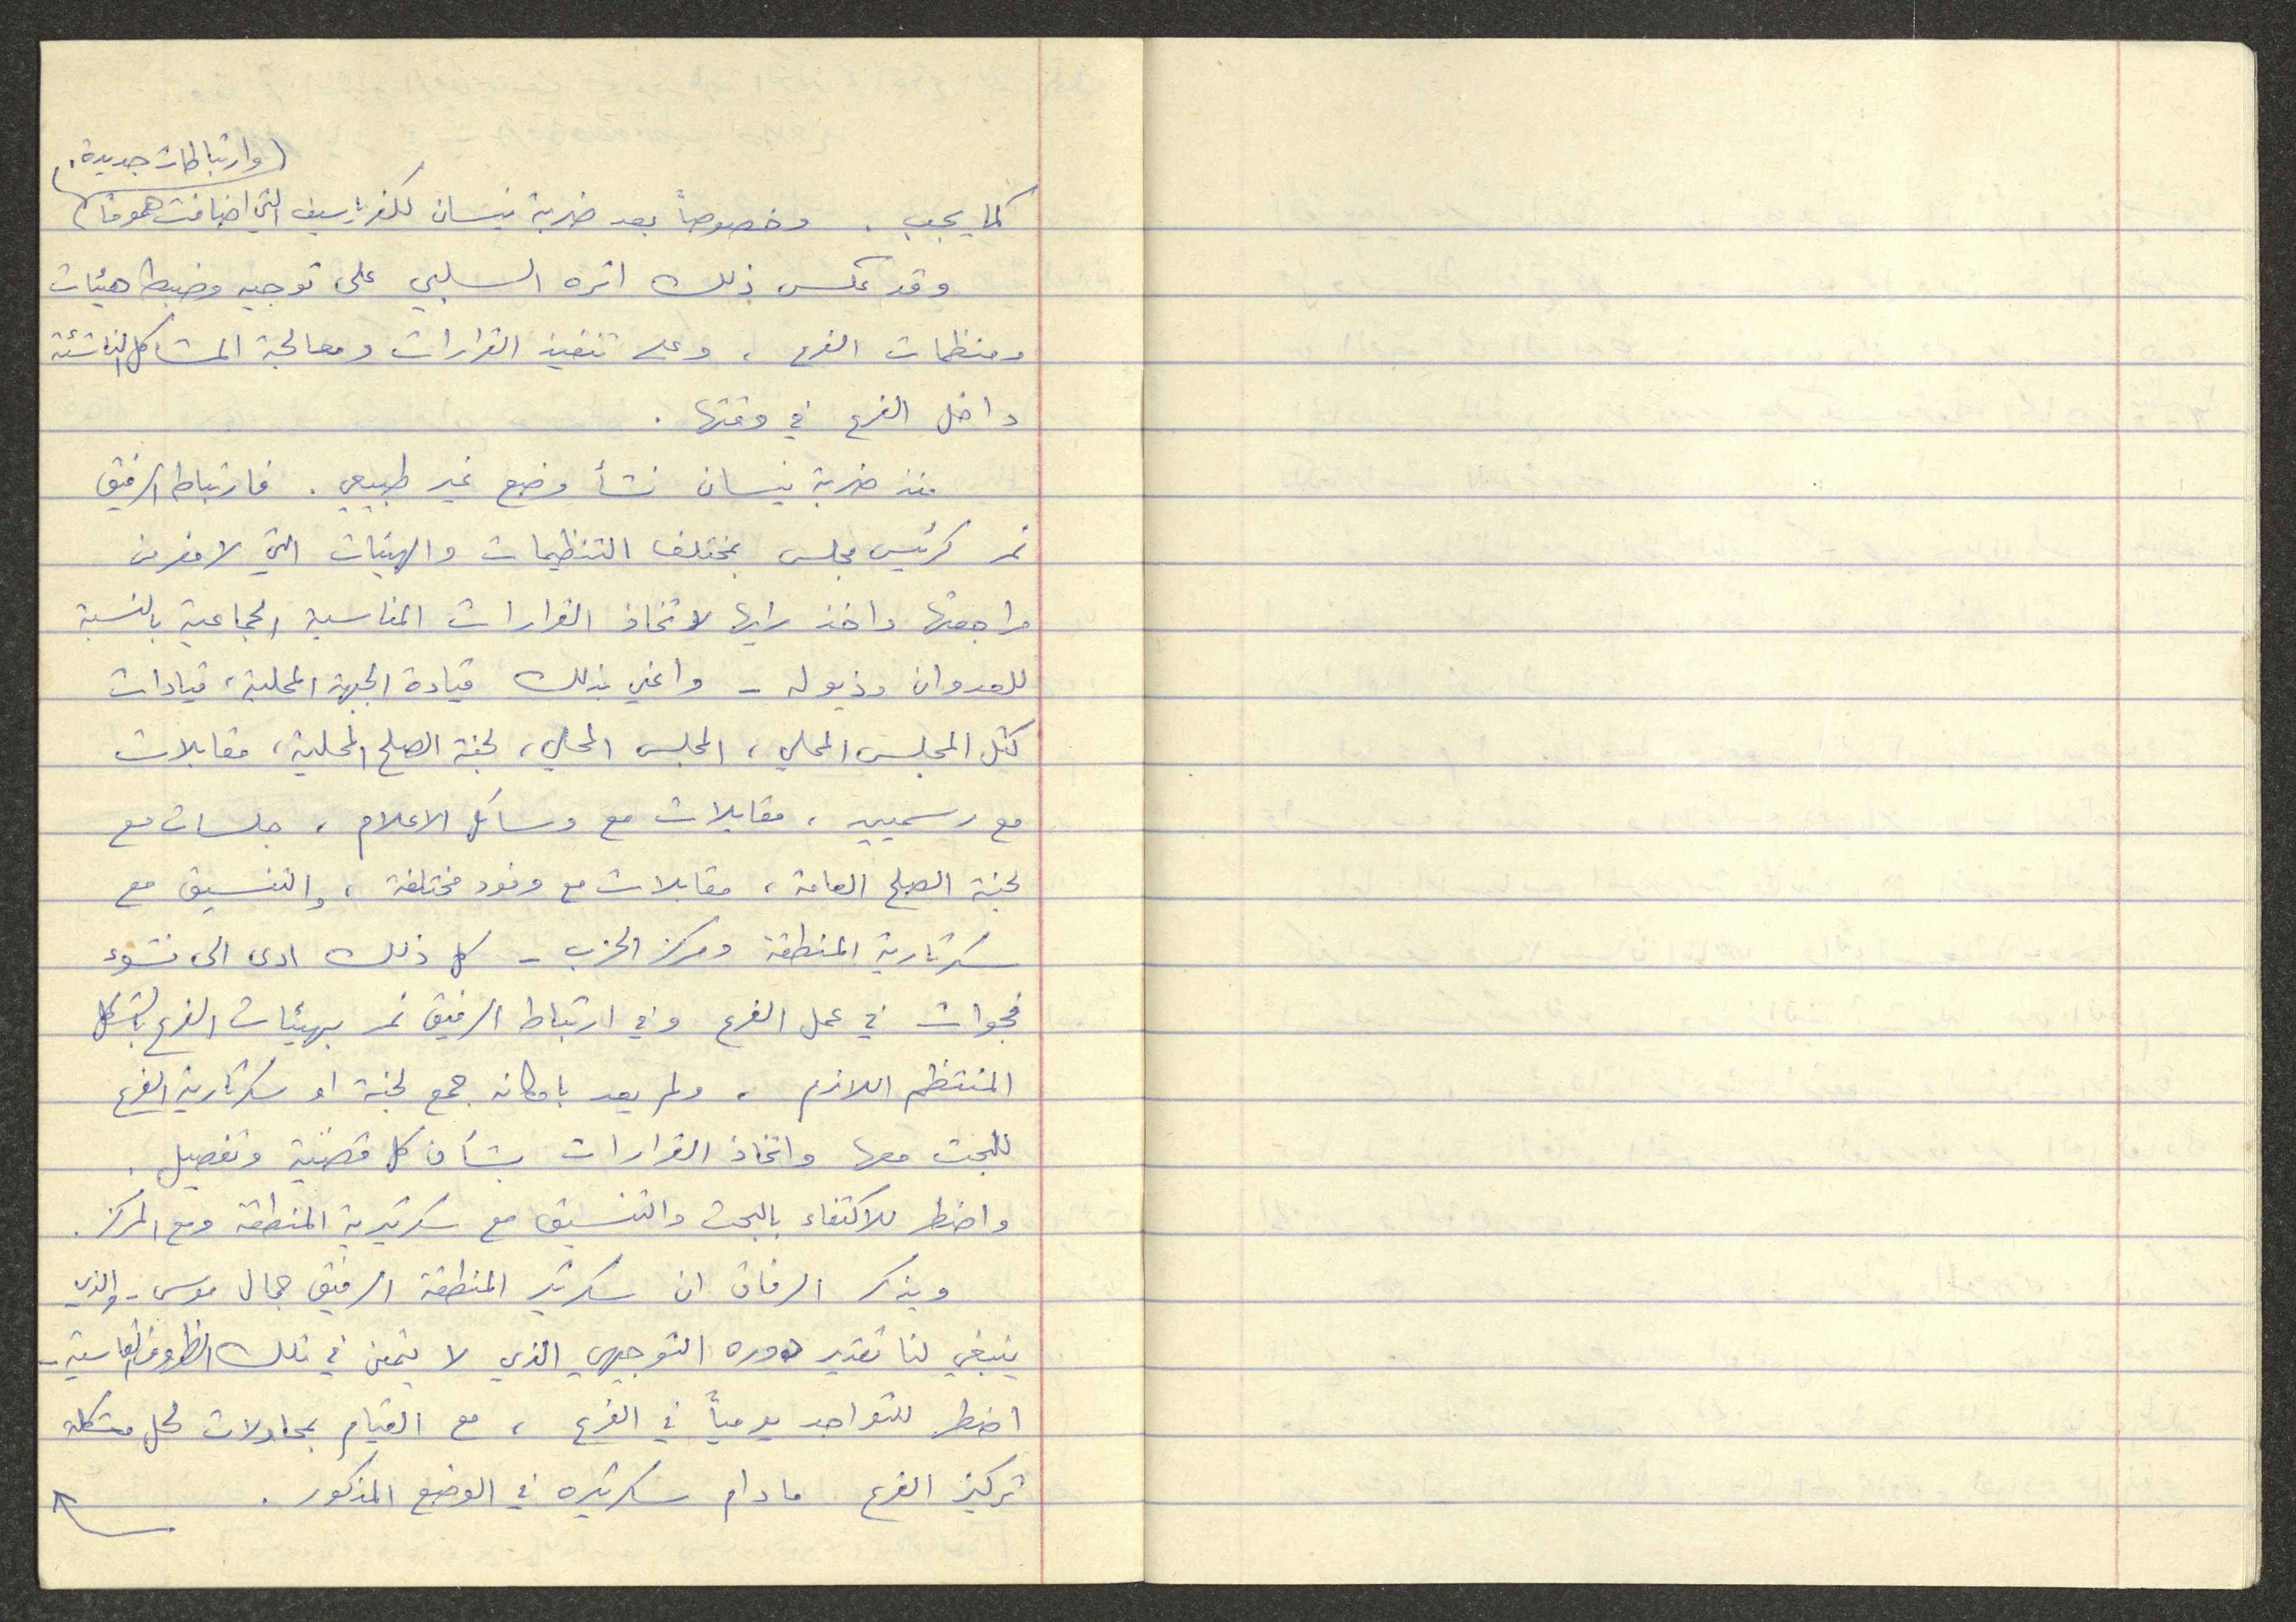 وارتباطات جديدة.
كما يجب. وخصوصاً بعد ضربة نيسان لكفرياسيف التي اضافت هموماً
وقد عكس ذلك اثره السلبي على توجيه وضبط هيئات
ومنظمات الفرع، وعلى تنفيذ القرارات ومعالجة المشاكل الناشئة
داخل الفرع في وقتها.
منذ ضربة نيسان نشأ وضع غير طبيعي. فارتباط الرفيق
نمر كرئيس مجلس بمختلف التنظيمات والهيئات التي لا مفر من
مراجعتها واخذ رايها لاتخاذ القرارات المناسبة الجماعية بالنسبة
للعدوان وذيوله - واعني بذلك قيادة الجبهة المحلية، قيادات
كتل المجلس المحلي، المجلس المحلي، لجنة الصلح المحلية، مقابلات
مع رسميين، مقابلات مع وسائل الاعلام، جلسات مع
لجنة الصلح العامة، مقابلات مع وفود مختلفة، والتنسيق مع
سكرتارية المنطقة ومركز الحزب - كل ذلك ادى الى نشوء
فجوات في عمل الفرع وفي ارتباط الرفيق نمر بهيئات الفرع بالشكل
المنتظم اللازم، ولم يعد بامكانه جمع لجنة او سكرتارية الفرع
للبحث معها واتخاذ القرارات بشأن كل قضية وتفصيل.
واضطر للاكتفاء بالبحث والتنسيق مع سكرتيرية المنطقة ومع المركز.
ويذكر الرفاق ان سكرتير المنطقة الرفيق جمال موسى - والذي
ينبغي لنا تقدير دوره التوجيهي الذي لا يثمن في تلك الظروف القاسية -
اضطر للتواجد يومياً في الفرع، مع القيام بمحاولات لحل مشكلة
تركيز الفرع ما دام سكرتيره في الوضع المذكور.